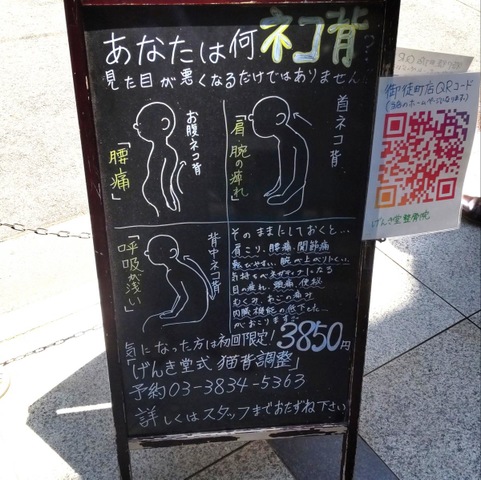 あなたは何ネコ背?
見た目が悪くなるだけではありません
お腹ネコ背
「腰痛」
首ネコ背
「肩、腕の痺れ」
背中ネコ背
「呼吸が浅い」
そのままにしておくと…
肩こり、腰痛、関節痛
転びやすい、腕が上がりにくい
気持ちがネガティブになる
目の疲れ、頭痛、便秘
むくみ、あごの痛み
内臓機能の低下など
がおこります。
気になった方は初回限定!3850円
「げんき堂式 猫背調整」
予約03-3834-5363
詳しくはスタッフまでおたずね下さい
御徒町店QRコード
(当店のホームページになります。)
げんき堂整骨院